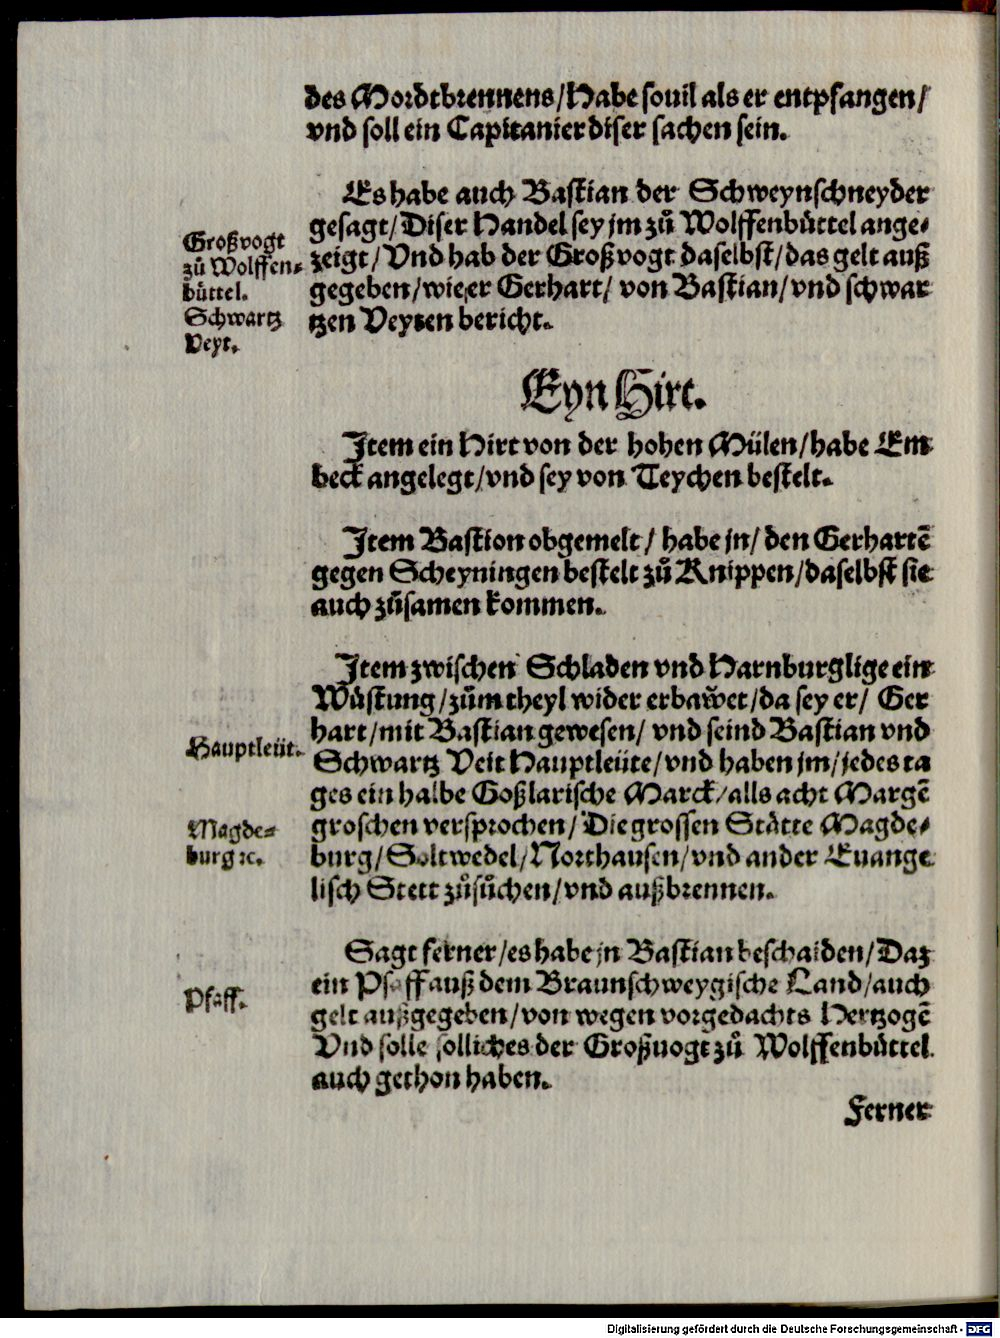 des Mordtbrennens/Habe souil als er entpfangen/
vnd soll ein Capitanier diser sachen sein.
Es habe auch Bastian der Schweynschneyder
gesagt/Diser Handel sey jm zů Wolffenbüttel ange-
zeigt/Vnd hab der Großvogt daselbst/das gelt auß
gegeben/wie er Gerhart/ von Bastian/vnd schwar
tzen Veyten bericht.
Großvogt
zů Wolffen-
büttel.
Schwartz
Veyt.
Eyn Hirt.
Item ein Hirt von der hohen Mülen/habe Em
beck angelegt/vnd sey von Teychen bestelt.
Item Bastion obgemelt/ habe jn/ den Gerhartē
gegen Scheyningen bestelt zů Knippen/daselbst sie
auch zůsamen kommen.
Item zwischen Schladen vnd Harnburg lige ein
Wüstung/zům theyl wider erbawet/da sey er/ Ger
hart/mit Bastian gewesen/ vnd seind Bastian vnd
Schwartz Veit Hauptleüte/vnd haben jm/jedes ta
ges ein halbe Goßlarische Marck/alls acht Margē
groschen versprochen/Die grossen Stätte Magde-
burg/Soltwedel/Northausen/vnd ander Euange
lisch Stett zůsůchen/vnd außbrennen.
Hauptleüt.
Magde-
burg ꝛc.
Sagt ferner/es habe jn Bastian beschaiden/Daz
ein Pfaff auß dem Braunschweygische Land/auch
gelt außgegeben/von wegen vorgedachts Hertzogē
Vnd solle solliches der Großuogt zů Wolffenbüttel
auch gethon haben.
Pfaff.
Ferner
Digitalisierung gefördert durch die Deutsche Forschungsgemeinschaft - DFG